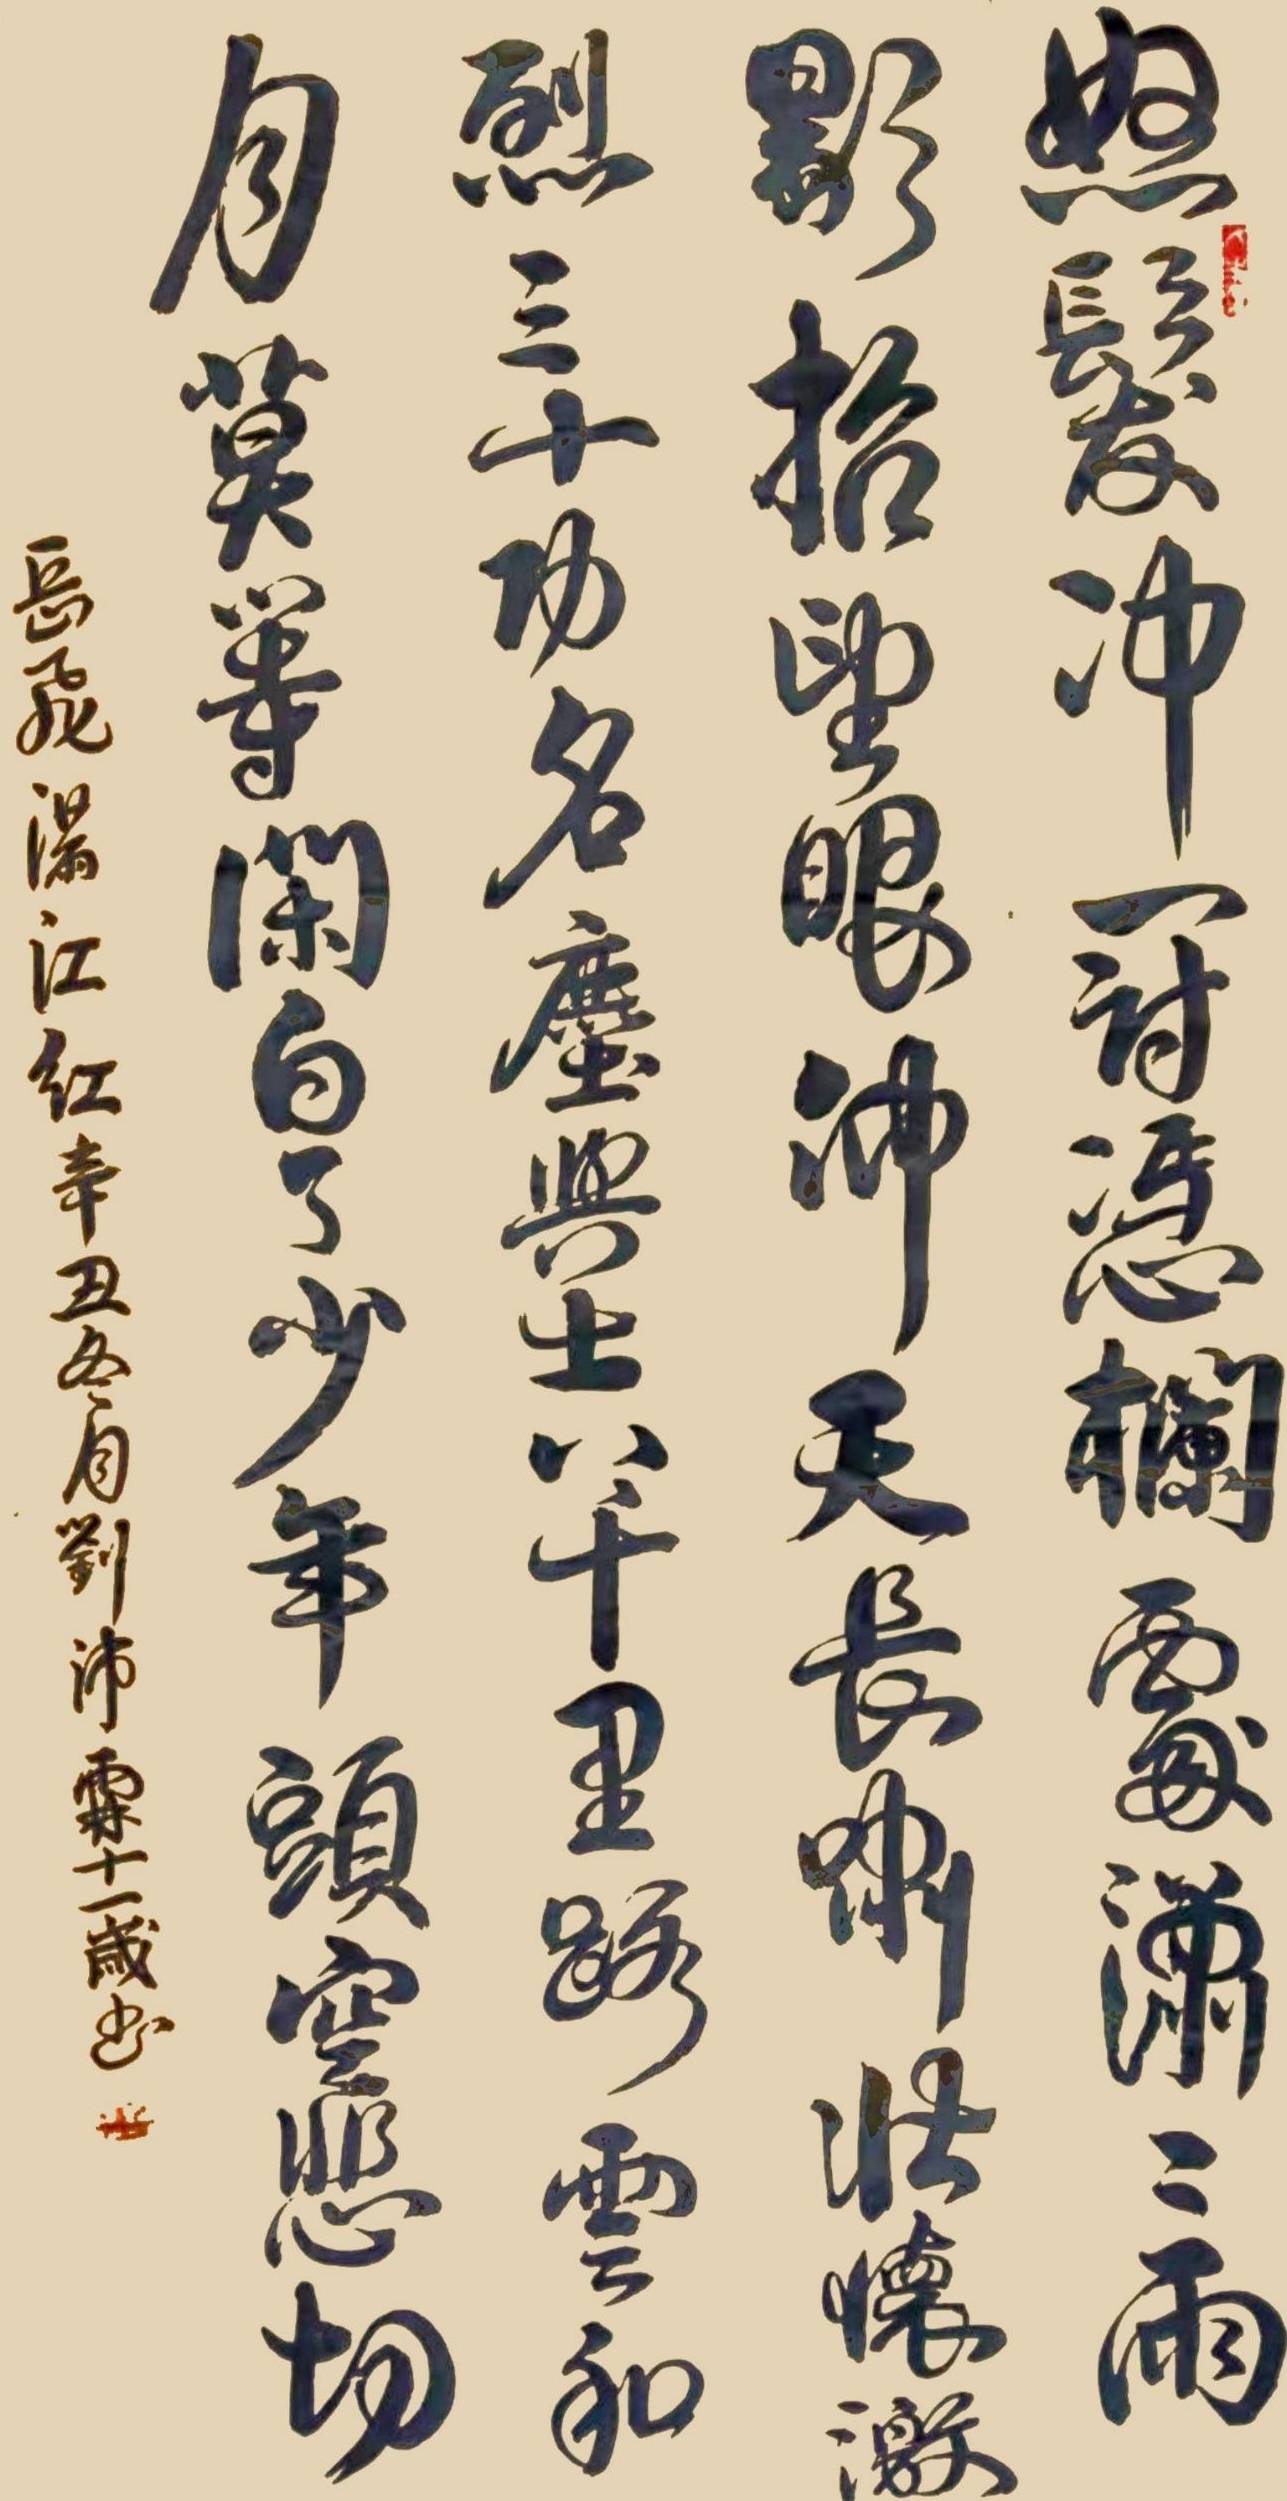 怒髮冲冠憑欄處瀟〻雨
歇抬望眼仰天長嘯壯懷激
烈三十功名塵與土八千里路雲和
月莫等閑白了少年頭空悲切
岳飛滿江紅辛丑冬月劉沛霖十一歲书